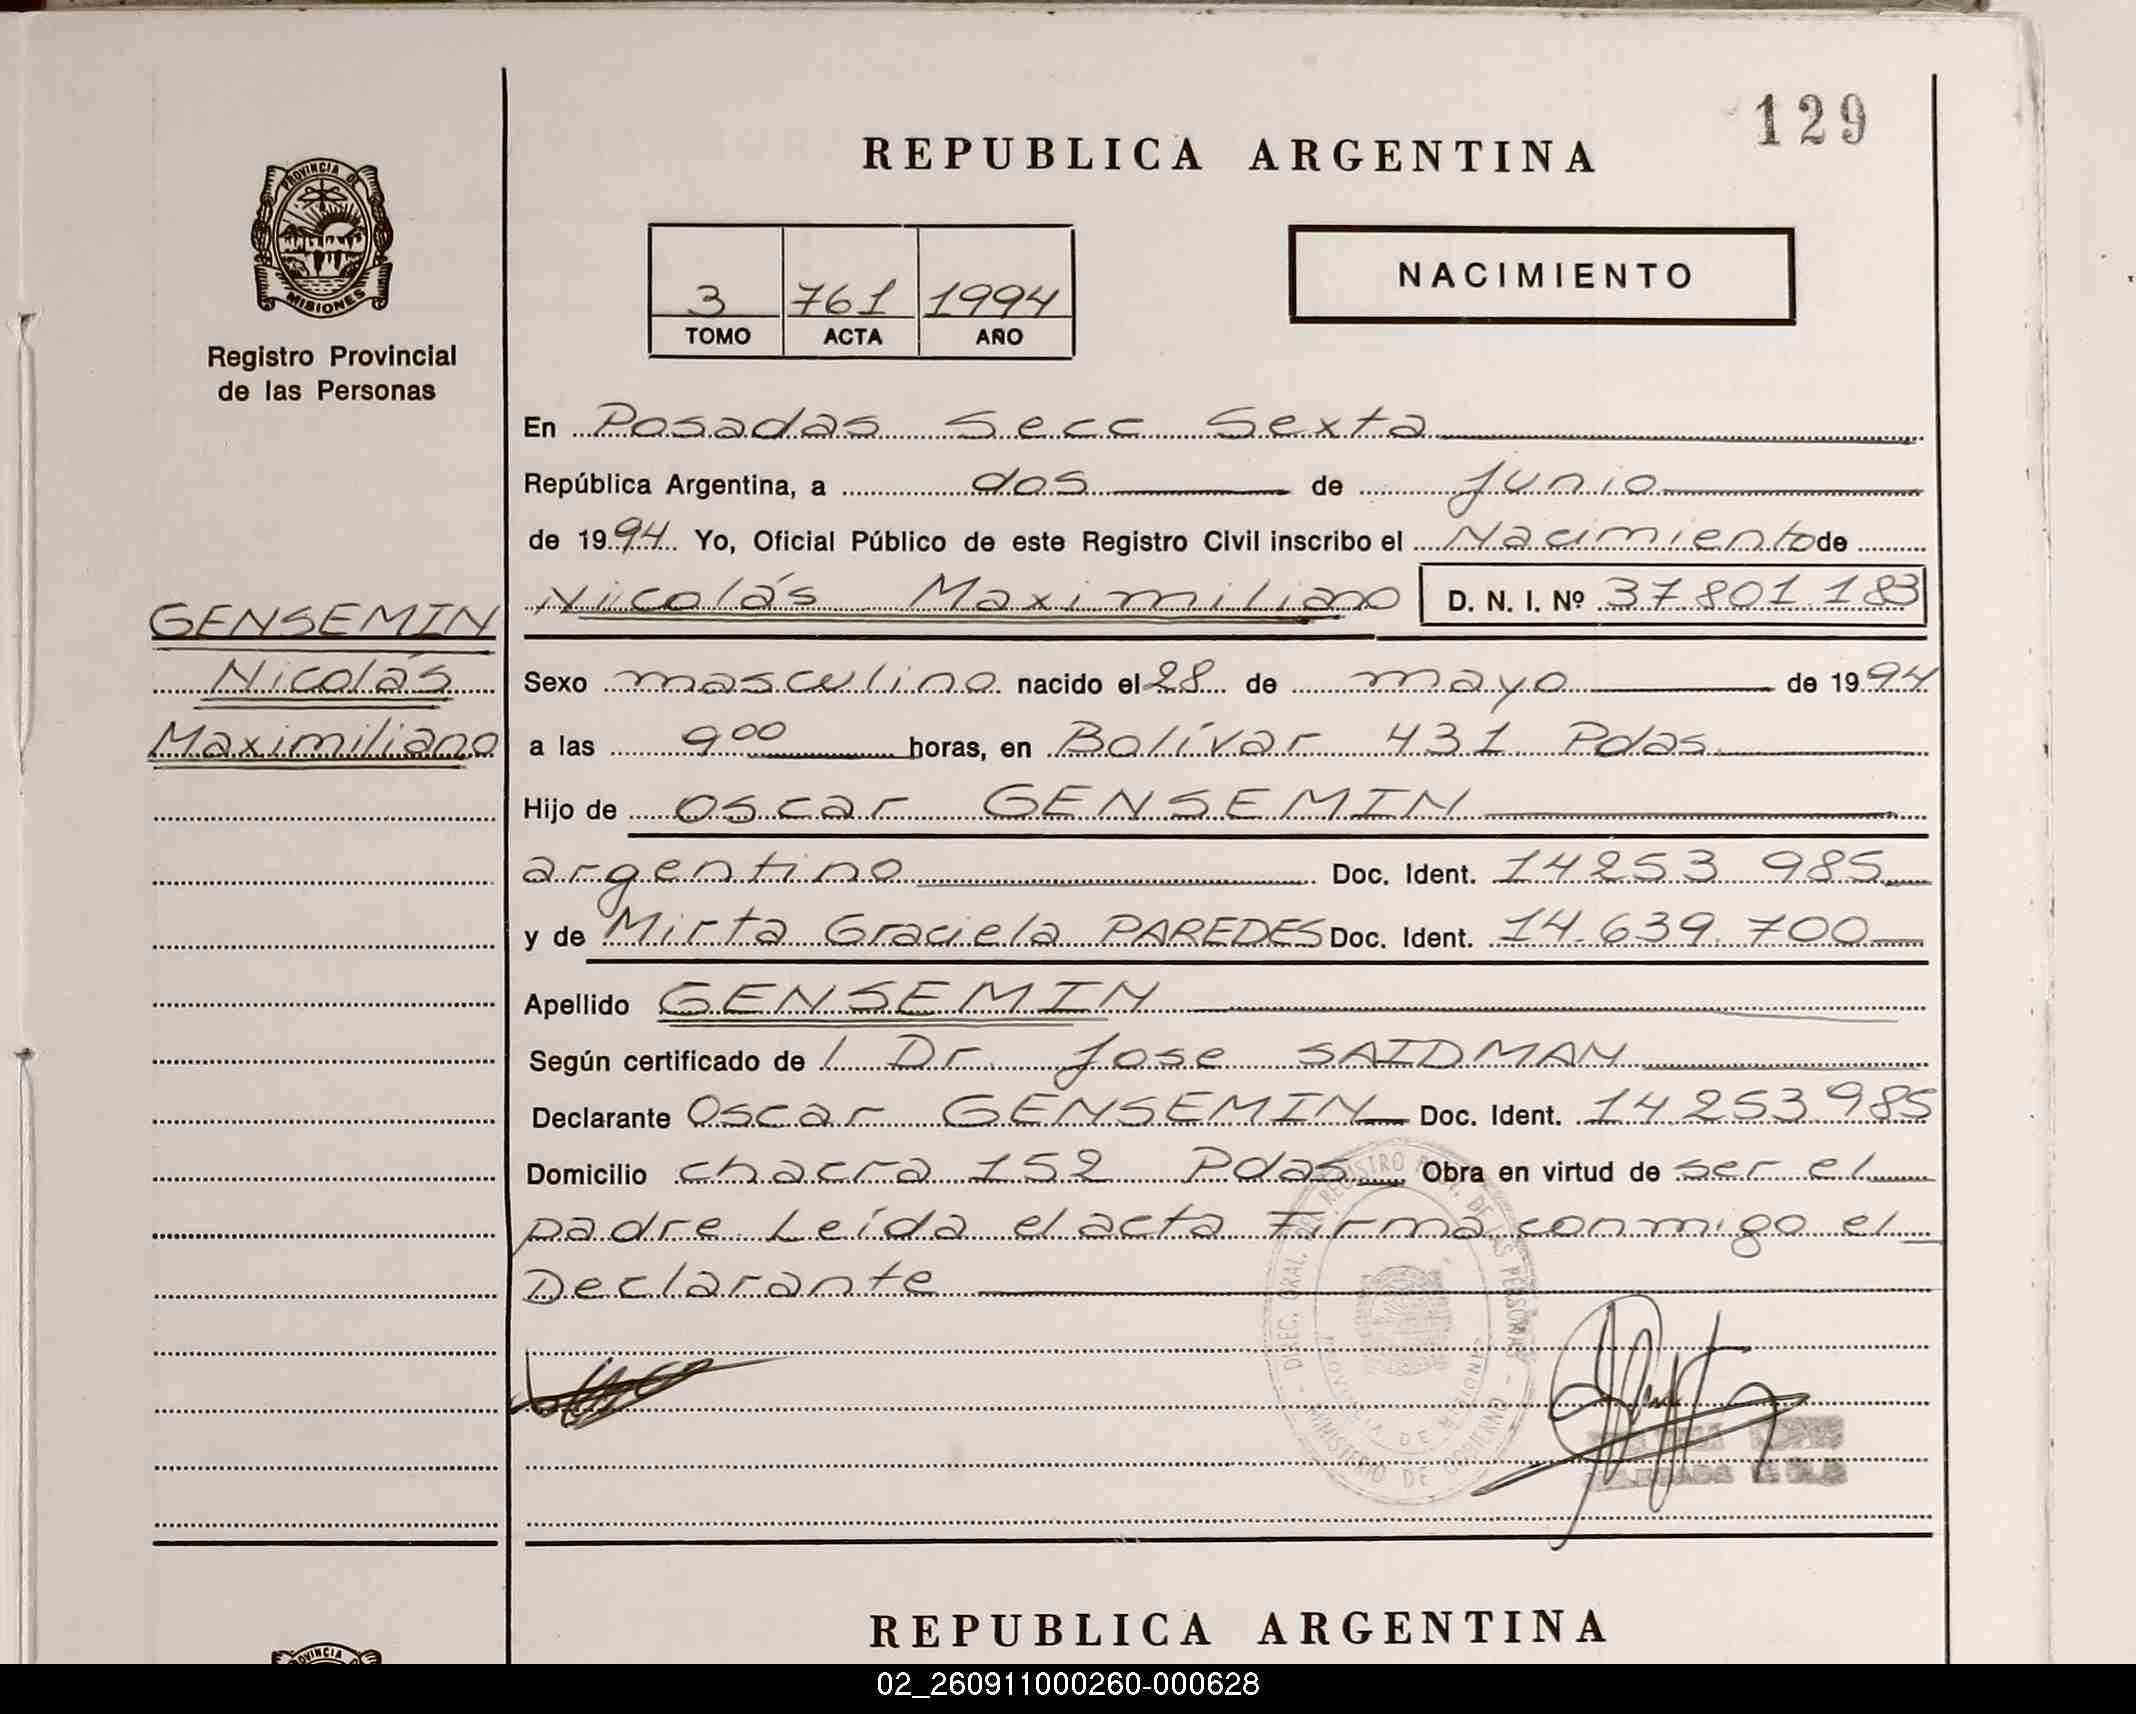 129
REPUBLICA ARGENTINA
PROVINCIA DE
MISIONES
Registro Provincial
de las Personas
3 761 1994
TOMO ACTA AÑO
NACIMIENTO
En Posadas Secc Sexta
República Argentina, a dos de junio
de 1994 Yo, Oficial Público de este Registro Civil inscribo el Nacimiento de
GENSEMIN
Nicolás
Maximiliano
Nicolás Maximiliano D. N. I. Nº 37 801.183
Sexo masculino nacido el 28 de mayo de 1994
a las 9 00 horas, en Bolívar 431 Pdas
Hijo de Oscar GENSEMIN
argentino Doc. Ident. 14253 985
y de Mirta Graciela PAREDES Doc. Ident. 14.639.700
Apellido GENSEMIN
Según certificado de l Dr. Jose SAIDMAN
Declarante Oscar GENSEMIN Doc. Ident. 14.253.985
Domicilio chacra 152 Pdas Obra en virtud de ser el
padre Leída el acta Firma conmigo el
Declarante
DIREC. GRAL. DEL REGISTRO PROV. DE LAS PERSONAS
PROVINCIA DE MISIONES
MINISTERIO DE GOBIERNO
REPUBLICA ARGENTINA
PROVINCIA DE
02_260911000260-000628